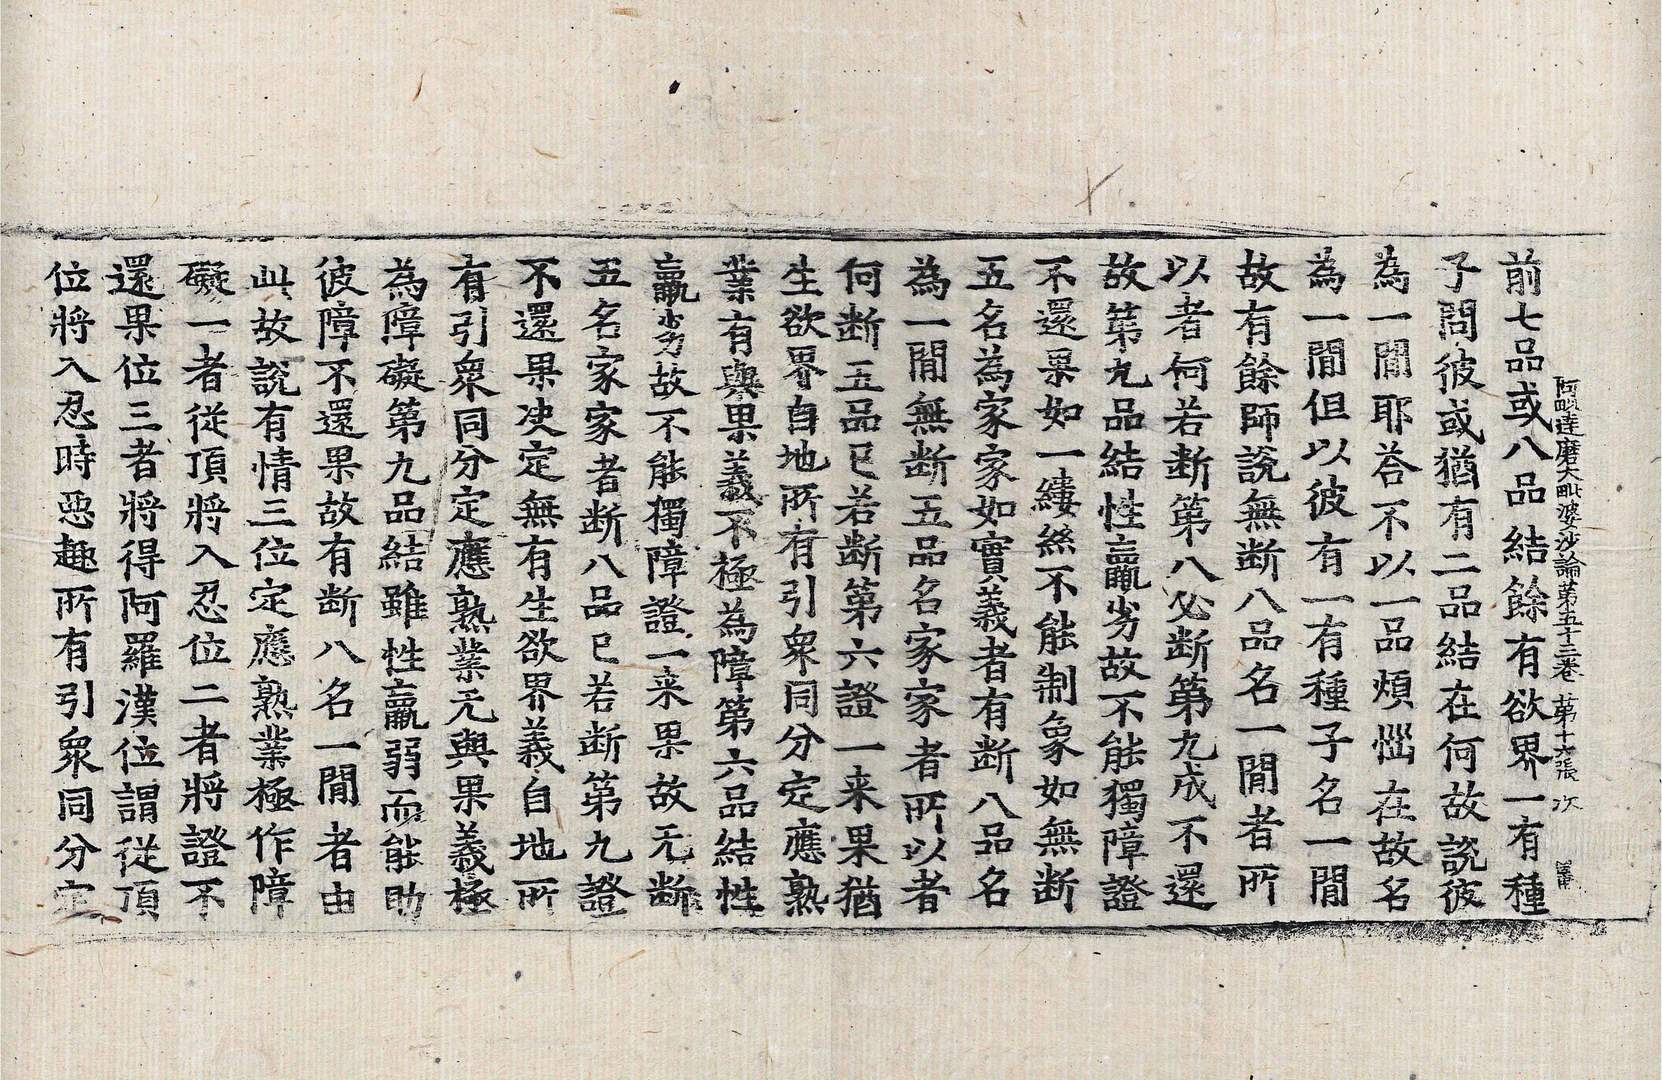 阿毗達磨大毗婆沙論第五十三卷 第十六張 次
前七品或八品結餘有欲界一有種
子問彼或猶有二品結在何故說彼
為一閒耶荅不以一品煩惱在故名
為一閒但以彼有一有種子名一閒
故有餘師說無斷八品名一閒者所
以者何若斷第八必斷第九成不還
故第九品結性羸劣故不能獨障證
不還果如一縷絲不能制象如無斷
五名為家家如實義者有斷八品名
為一閒無斷五品名家家者所以者
何断五品已若断第六證一来果猶
生欲界自地所有引衆同分定應熟
業有與果義不極為障第六品結性
羸劣故不能獨障證一来果故无断
五名家家者断八品已若断第九證
不還果决定無有生欲界義自地所
有引衆同分定應熟業无與果義極
為障礙第九品結雖性羸弱而能助
彼障不還果故有断八名一閒者由
此故說有情三位定應熟業極作障
礙一者從頂將入忍位二者將證不
還果位三者將得阿羅漢位謂從頂
位將入忍時惡趣所有引衆同分定